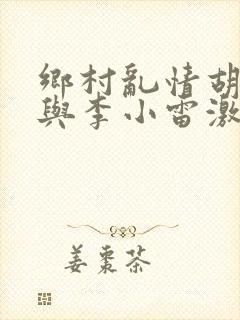 鄉村亂情胡
與李小雷激
姜棗茶